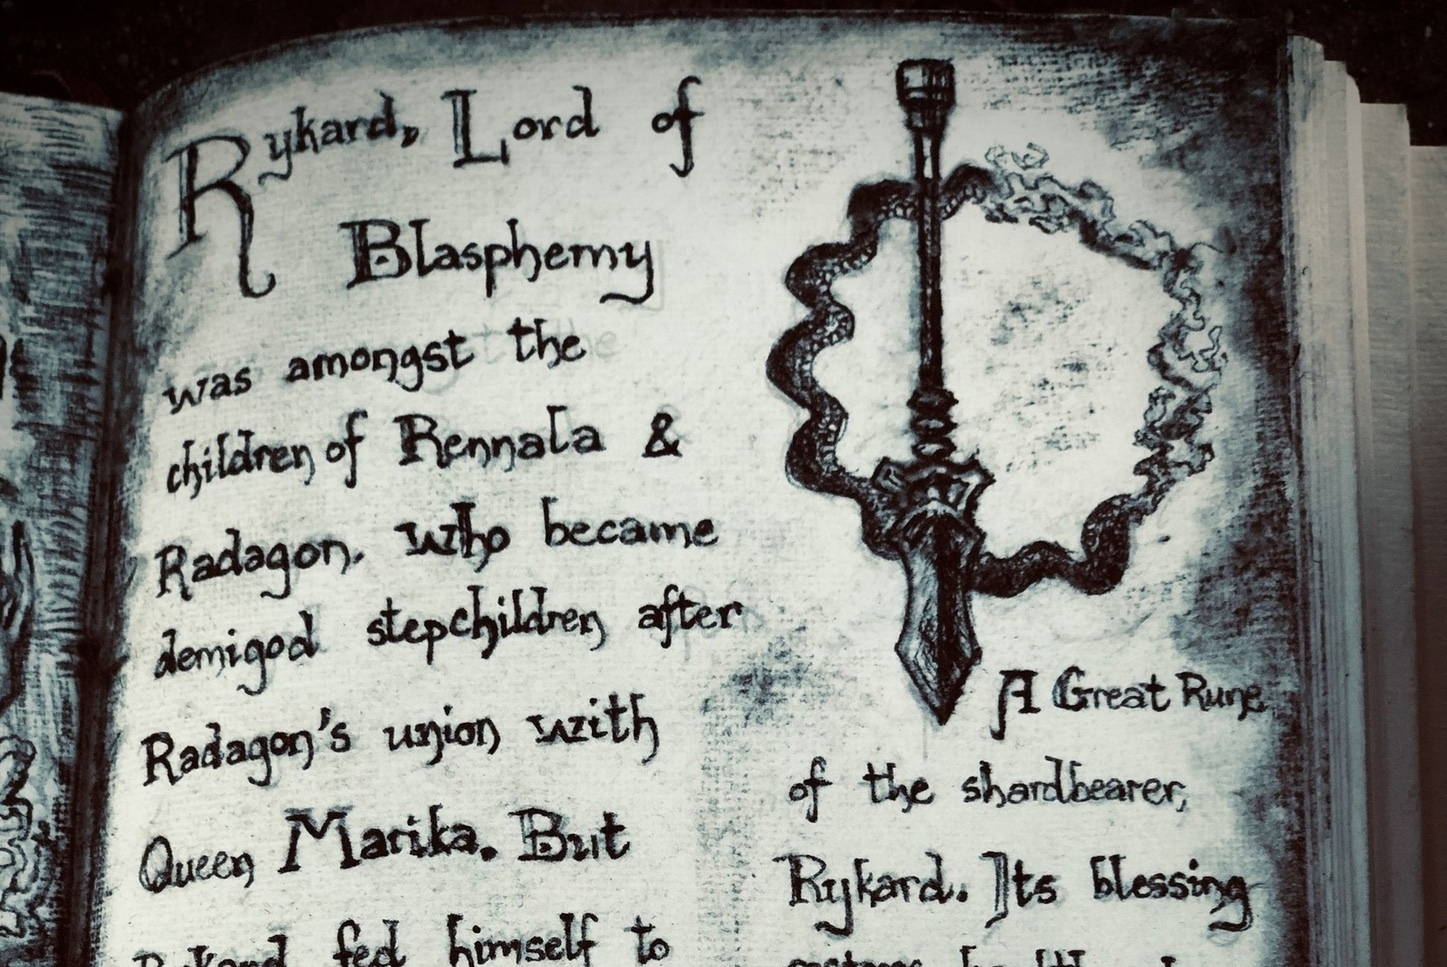 Rykard, Lord of
Blasphemy
was amongst the
children of Rennala &
Radagon. Who became
demigod stepchildren after
Radagon's union with
Queen Marika. But
Rykard fed himself to
A Great Rune
of the shardbearer,
Rykard. Its blessing